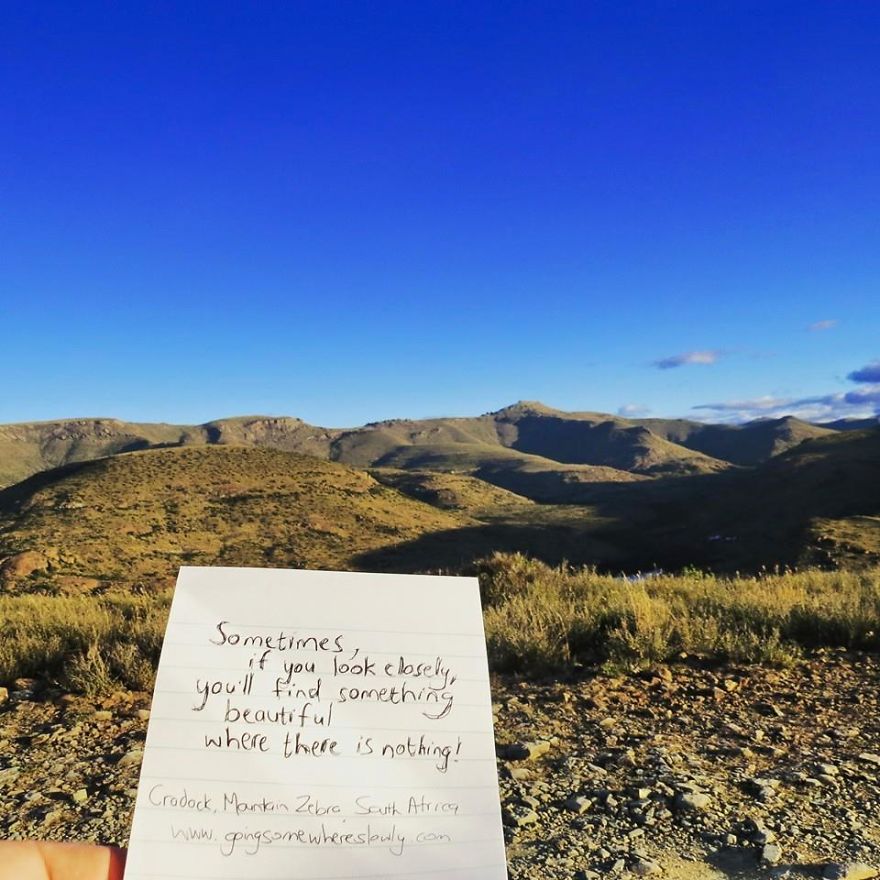 Sometimes,
if you look closely,
you'll find something
beautiful
where there is nothing!
Cradock, Mountain Zebra, South Africa
www.goingsomewhereslowly.com